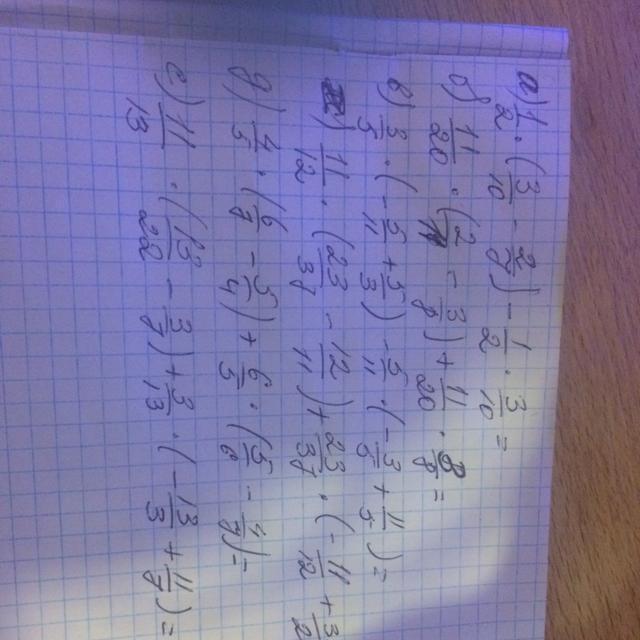 а) 1/2 · (3/10 - 2/9) - 1/2 · 3/10 =
б) 11/20 · (2 - 3/8) + 11/20 · 3/8 =
в) 3/5 · (-5/11 + 5/3) - 5/11 · (-3/5 + 11/5) =
) 11/12 · (23/38 - 12/11) + 23/38 · (-11/12 + 3/2
д) 4/5 · (6/7 - 5/4) + 6/5 · (5/6 - 4/7) =
е) 11/13 · (13/22 - 3/7) + 3/13 · (-13/3 + 11/7) =